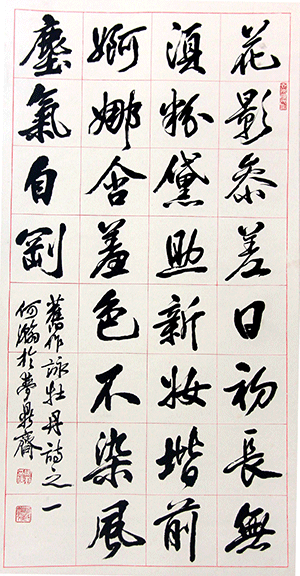 花影参差日初長無
須粉黛助新妝堦前
婀娜含羞色不染風
塵氣自剛
舊作詠牡丹詩之一
何瀚於夢鼎齋